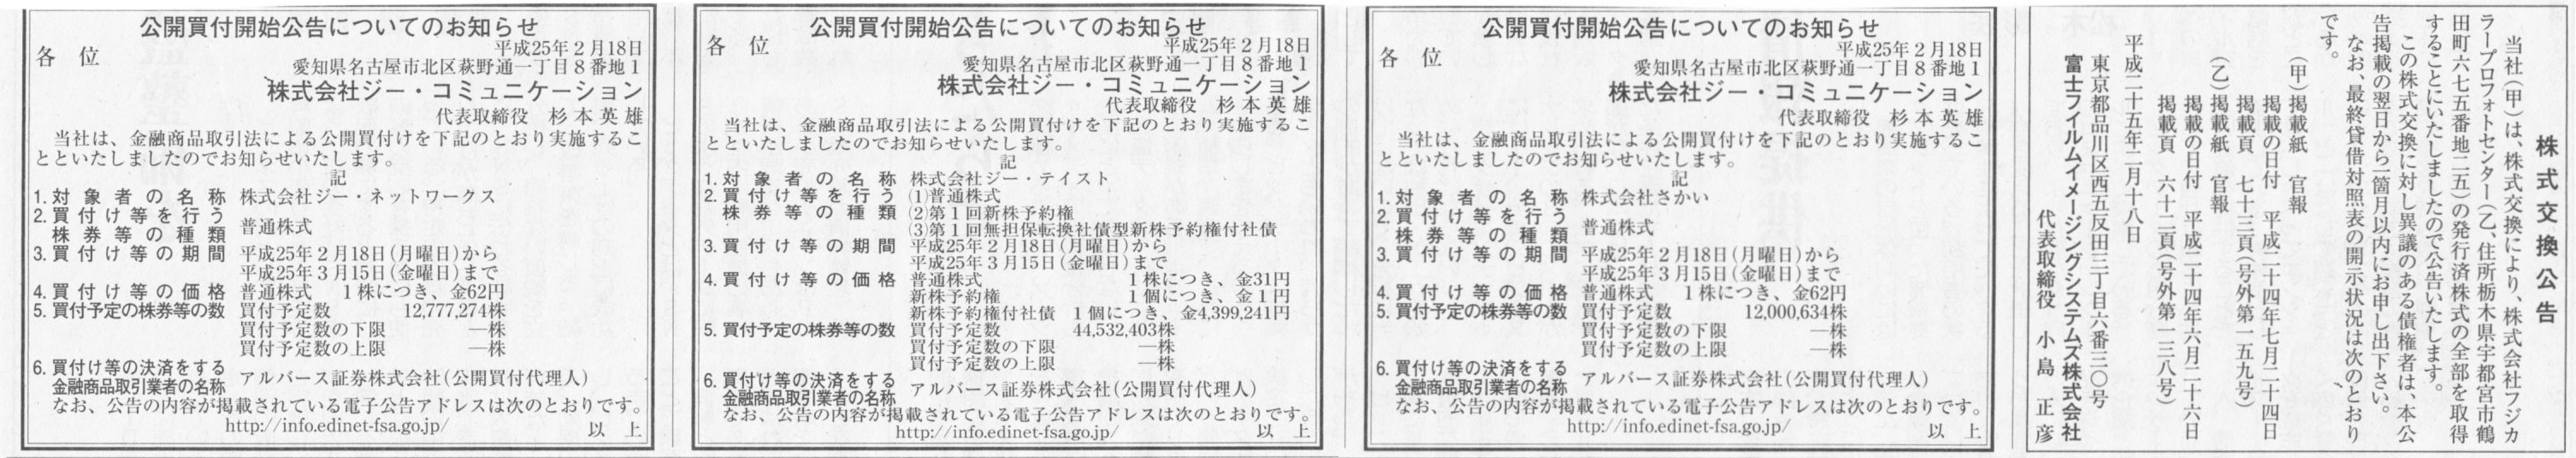 公開買付開始公告についてのお知らせ
平成25年2月18日
各 位
愛知県名古屋市北区萩野通一丁目8番地1
株式会社ジー・コミュニケーション
代表取締役 杉本英雄
当社は、金融商品取引法による公開買付けを下記のとおり実施するこ
とといたしましたのでお知らせいたします。
記
1. 対象者の名称 株式会社ジー・ネットワークス
2. 買付け等を行う
株券等の種類 普通株式
3. 買付け等の期間 平成25年2月18日(月曜日)から
平成25年3月15日(金曜日)まで
4. 買付け等の価格 普通株式 1株につき、金62円
5. 買付予定の株券等の数 買付予定数 12,777,274株
買付予定数の下限 ―株
買付予定数の上限 ―株
6. 買付け等の決済をする
金融商品取引業者の名称 アルバース証券株式会社(公開買付代理人)
なお、公告の内容が掲載されている電子公告アドレスは次のとおりです。
http://info.edinet-fsa.go.jp/ 以 上
公開買付開始公告についてのお知らせ
平成25年2月18日
各 位
愛知県名古屋市北区萩野通一丁目8番地1
株式会社ジー・コミュニケーション
代表取締役 杉本英雄
当社は、金融商品取引法による公開買付けを下記のとおり実施するこ
とといたしましたのでお知らせいたします。
記
1. 対象者の名称 株式会社ジー・テイスト
2. 買付け等を行う (1)普通株式
株券等の種類 (2)第1回新株予約権
(3)第1回無担保転換社債型新株予約権付社債
3. 買付け等の期間 平成25年2月18日(月曜日)から
平成25年3月15日(金曜日)まで
4. 買付け等の価格 普通株式 1株につき、金31円
新株予約権 1個につき、金1円
新株予約権付社債 1個につき、金4,399,241円
5. 買付予定の株券等の数 買付予定数 44,532,403株
買付予定数の下限 ―株
買付予定数の上限 ―株
6. 買付け等の決済をする
金融商品取引業者の名称 アルバース証券株式会社(公開買付代理人)
なお、公告の内容が掲載されている電子公告アドレスは次のとおりです。
http://info.edinet-fsa.go.jp/ 以 上
公開買付開始公告についてのお知らせ
平成25年2月18日
各 位
愛知県名古屋市北区萩野通一丁目8番地1
株式会社ジー・コミュニケーション
代表取締役 杉本英雄
当社は、金融商品取引法による公開買付けを下記のとおり実施するこ
とといたしましたのでお知らせいたします。
記
1. 対象者の名称 株式会社さかい
2. 買付け等を行う
株券等の種類 普通株式
3. 買付け等の期間 平成25年2月18日(月曜日)から
平成25年3月15日(金曜日)まで
4. 買付け等の価格 普通株式 1株につき、金62円
5. 買付予定の株券等の数 買付予定数 12,000,634株
買付予定数の下限 ―株
買付予定数の上限 ―株
6. 買付け等の決済をする
金融商品取引業者の名称 アルバース証券株式会社(公開買付代理人)
なお、公告の内容が掲載されている電子公告アドレスは次のとおりです。
http://info.edinet-fsa.go.jp/ 以 上
株式交換公告
当社(甲)は、株式交換により、株式会社フジカ
ラープロフォトセンター(乙、住所栃木県宇都宮市鶴
田町六七五番地二五)の発行済株式の全部を取得
することにいたしましたので公告いたします。
この株式交換に対し異議のある債権者は、本公
告掲載の翌日から一箇月以内にお申し出下さい。
なお、最終貸借対照表の開示状況は次のとおり
です。
(甲)掲載紙 官報
掲載の日付 平成二十四年七月二十四日
掲載頁 七十三頁(号外第一五九号)
(乙)掲載紙 官報
掲載の日付 平成二十四年六月二十六日
掲載頁 六十二頁(号外第一三八号)
平成二十五年二月十八日
東京都品川区西五反田三丁目六番三〇号
富士フイルムイメージングシステムズ株式会社
代表取締役 小島正彦